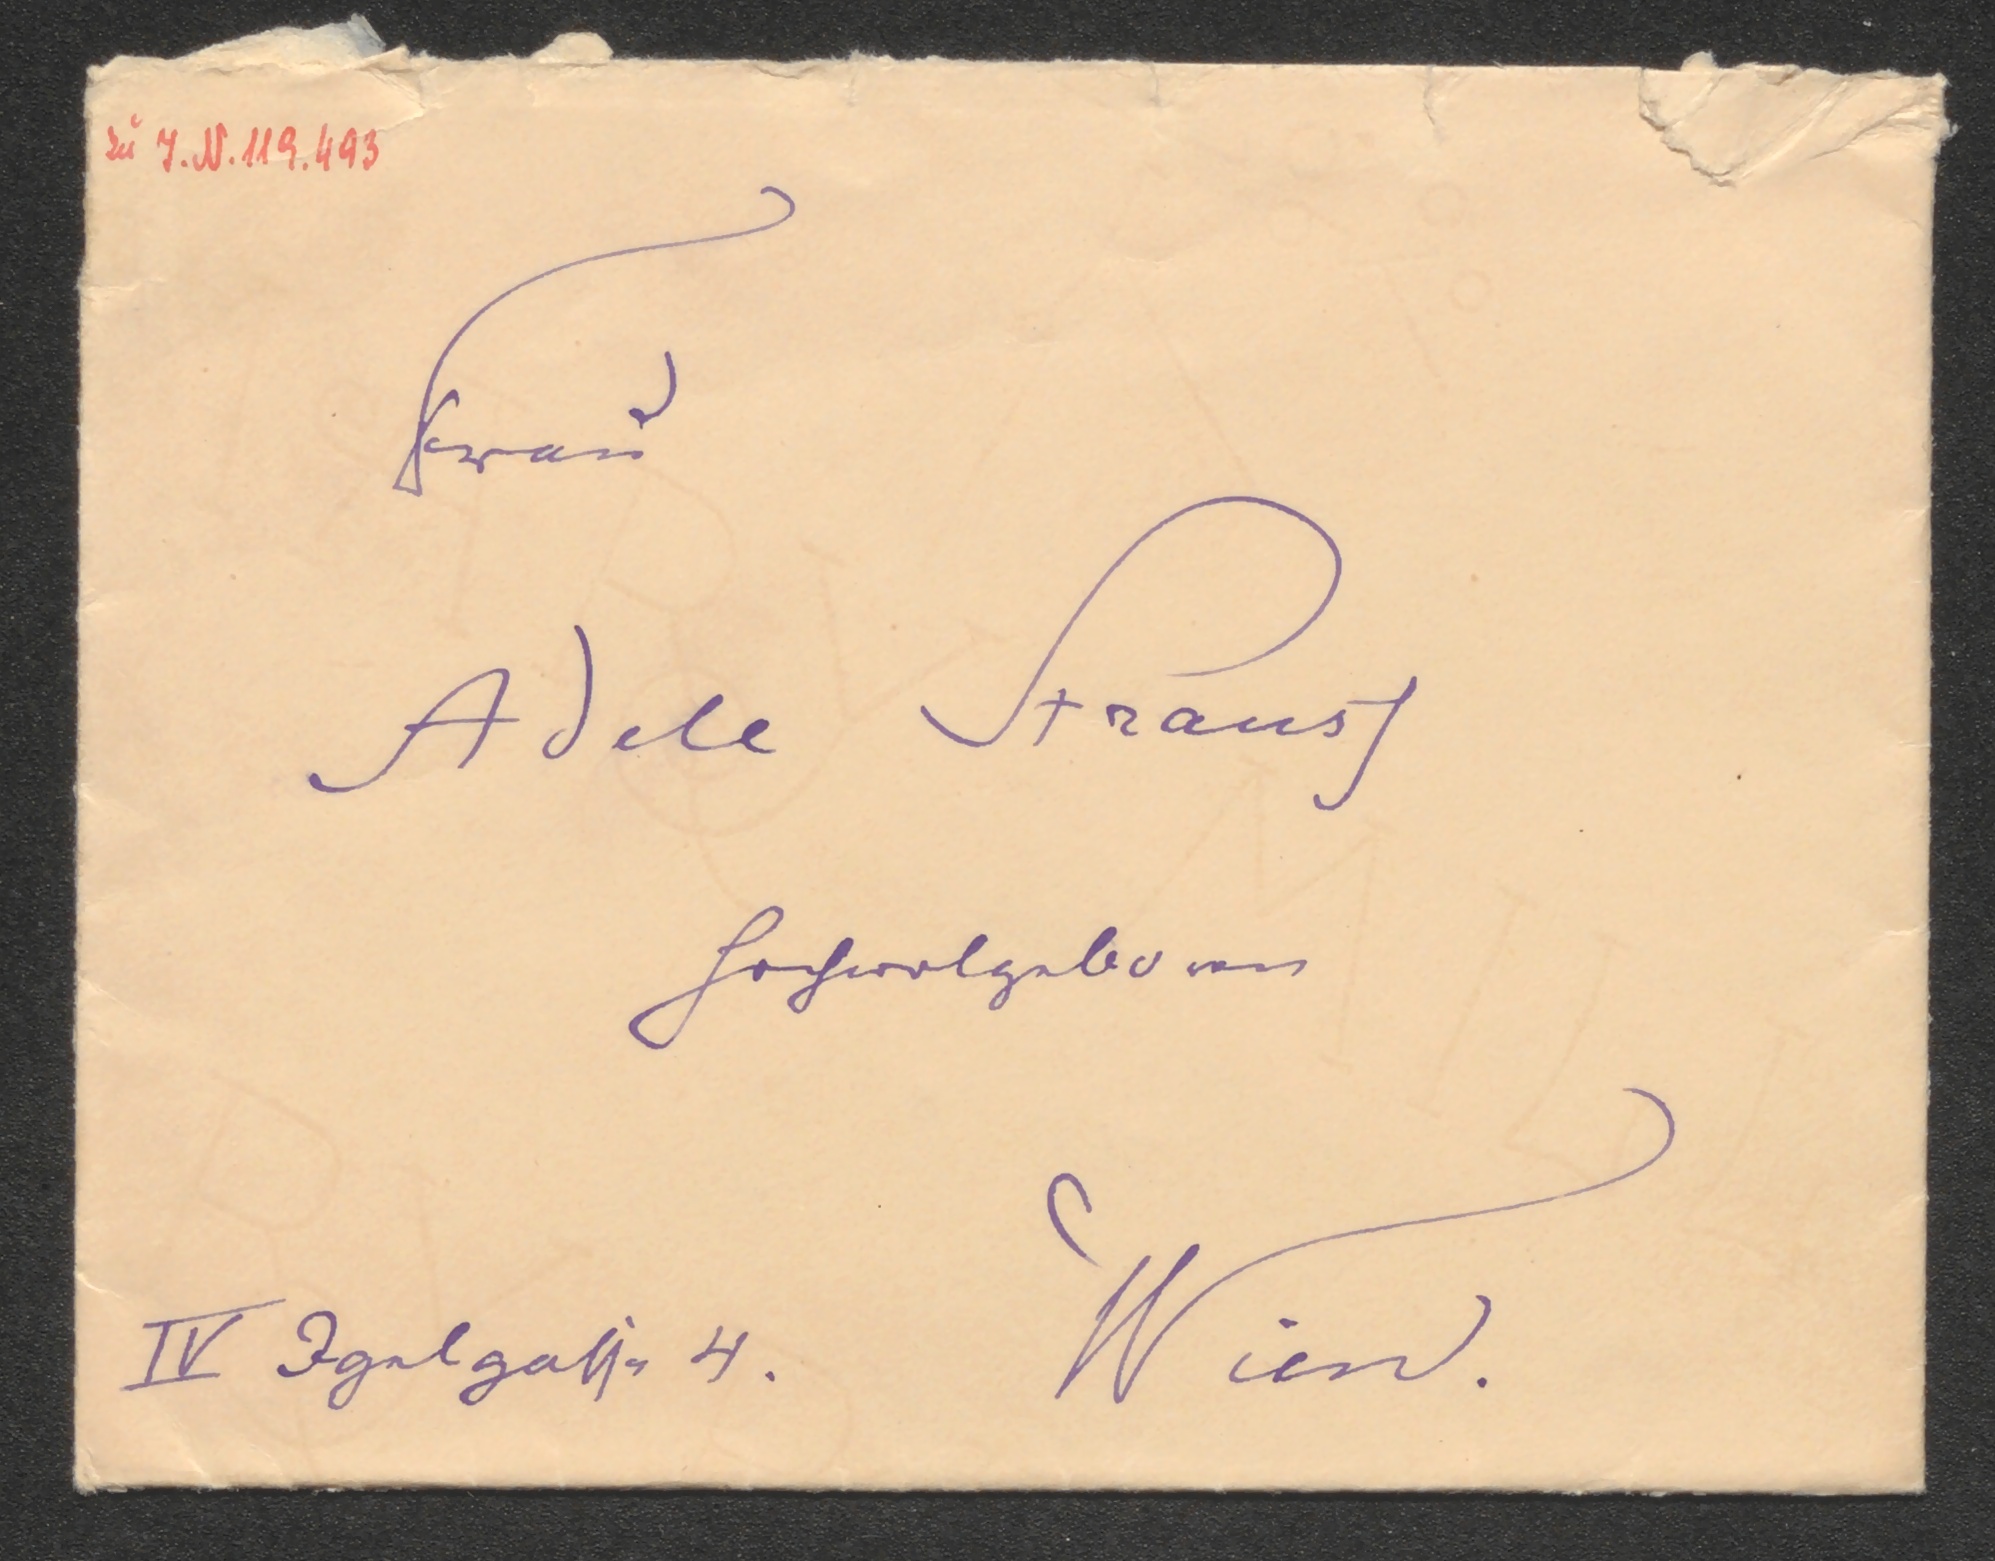 zu I.N. 119.493
Frau
Adele Strauss
Hochwolgeboren
IV Igelgasse 4. Wien.